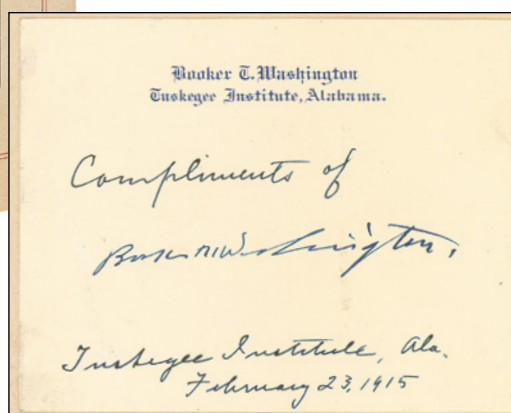 Booker T. Washington
Tuskegee Institute, Alabama.
Compliments of
Booker T. Washington.
Tuskegee Institute, Ala.
February 23, 1915